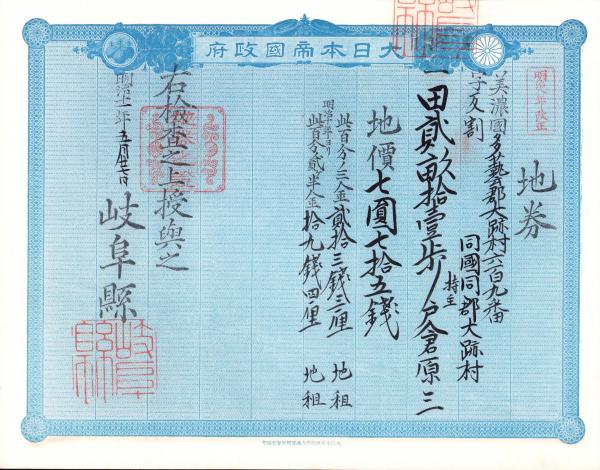 大日本帝國政府
地券
美濃國多藝郡大跡村六百九番
字友割
同國同郡大跡村
持主
戸倉原三
一田貳畝拾壹歩
地價七圓七拾五錢
此百分ノ三金貳拾三錢三厘 地租
明治十年ヨリ
此百分ノ貳半金拾九錢四厘 地租
右檢査之上授與之
明治十一年五月廿七日
岐阜縣